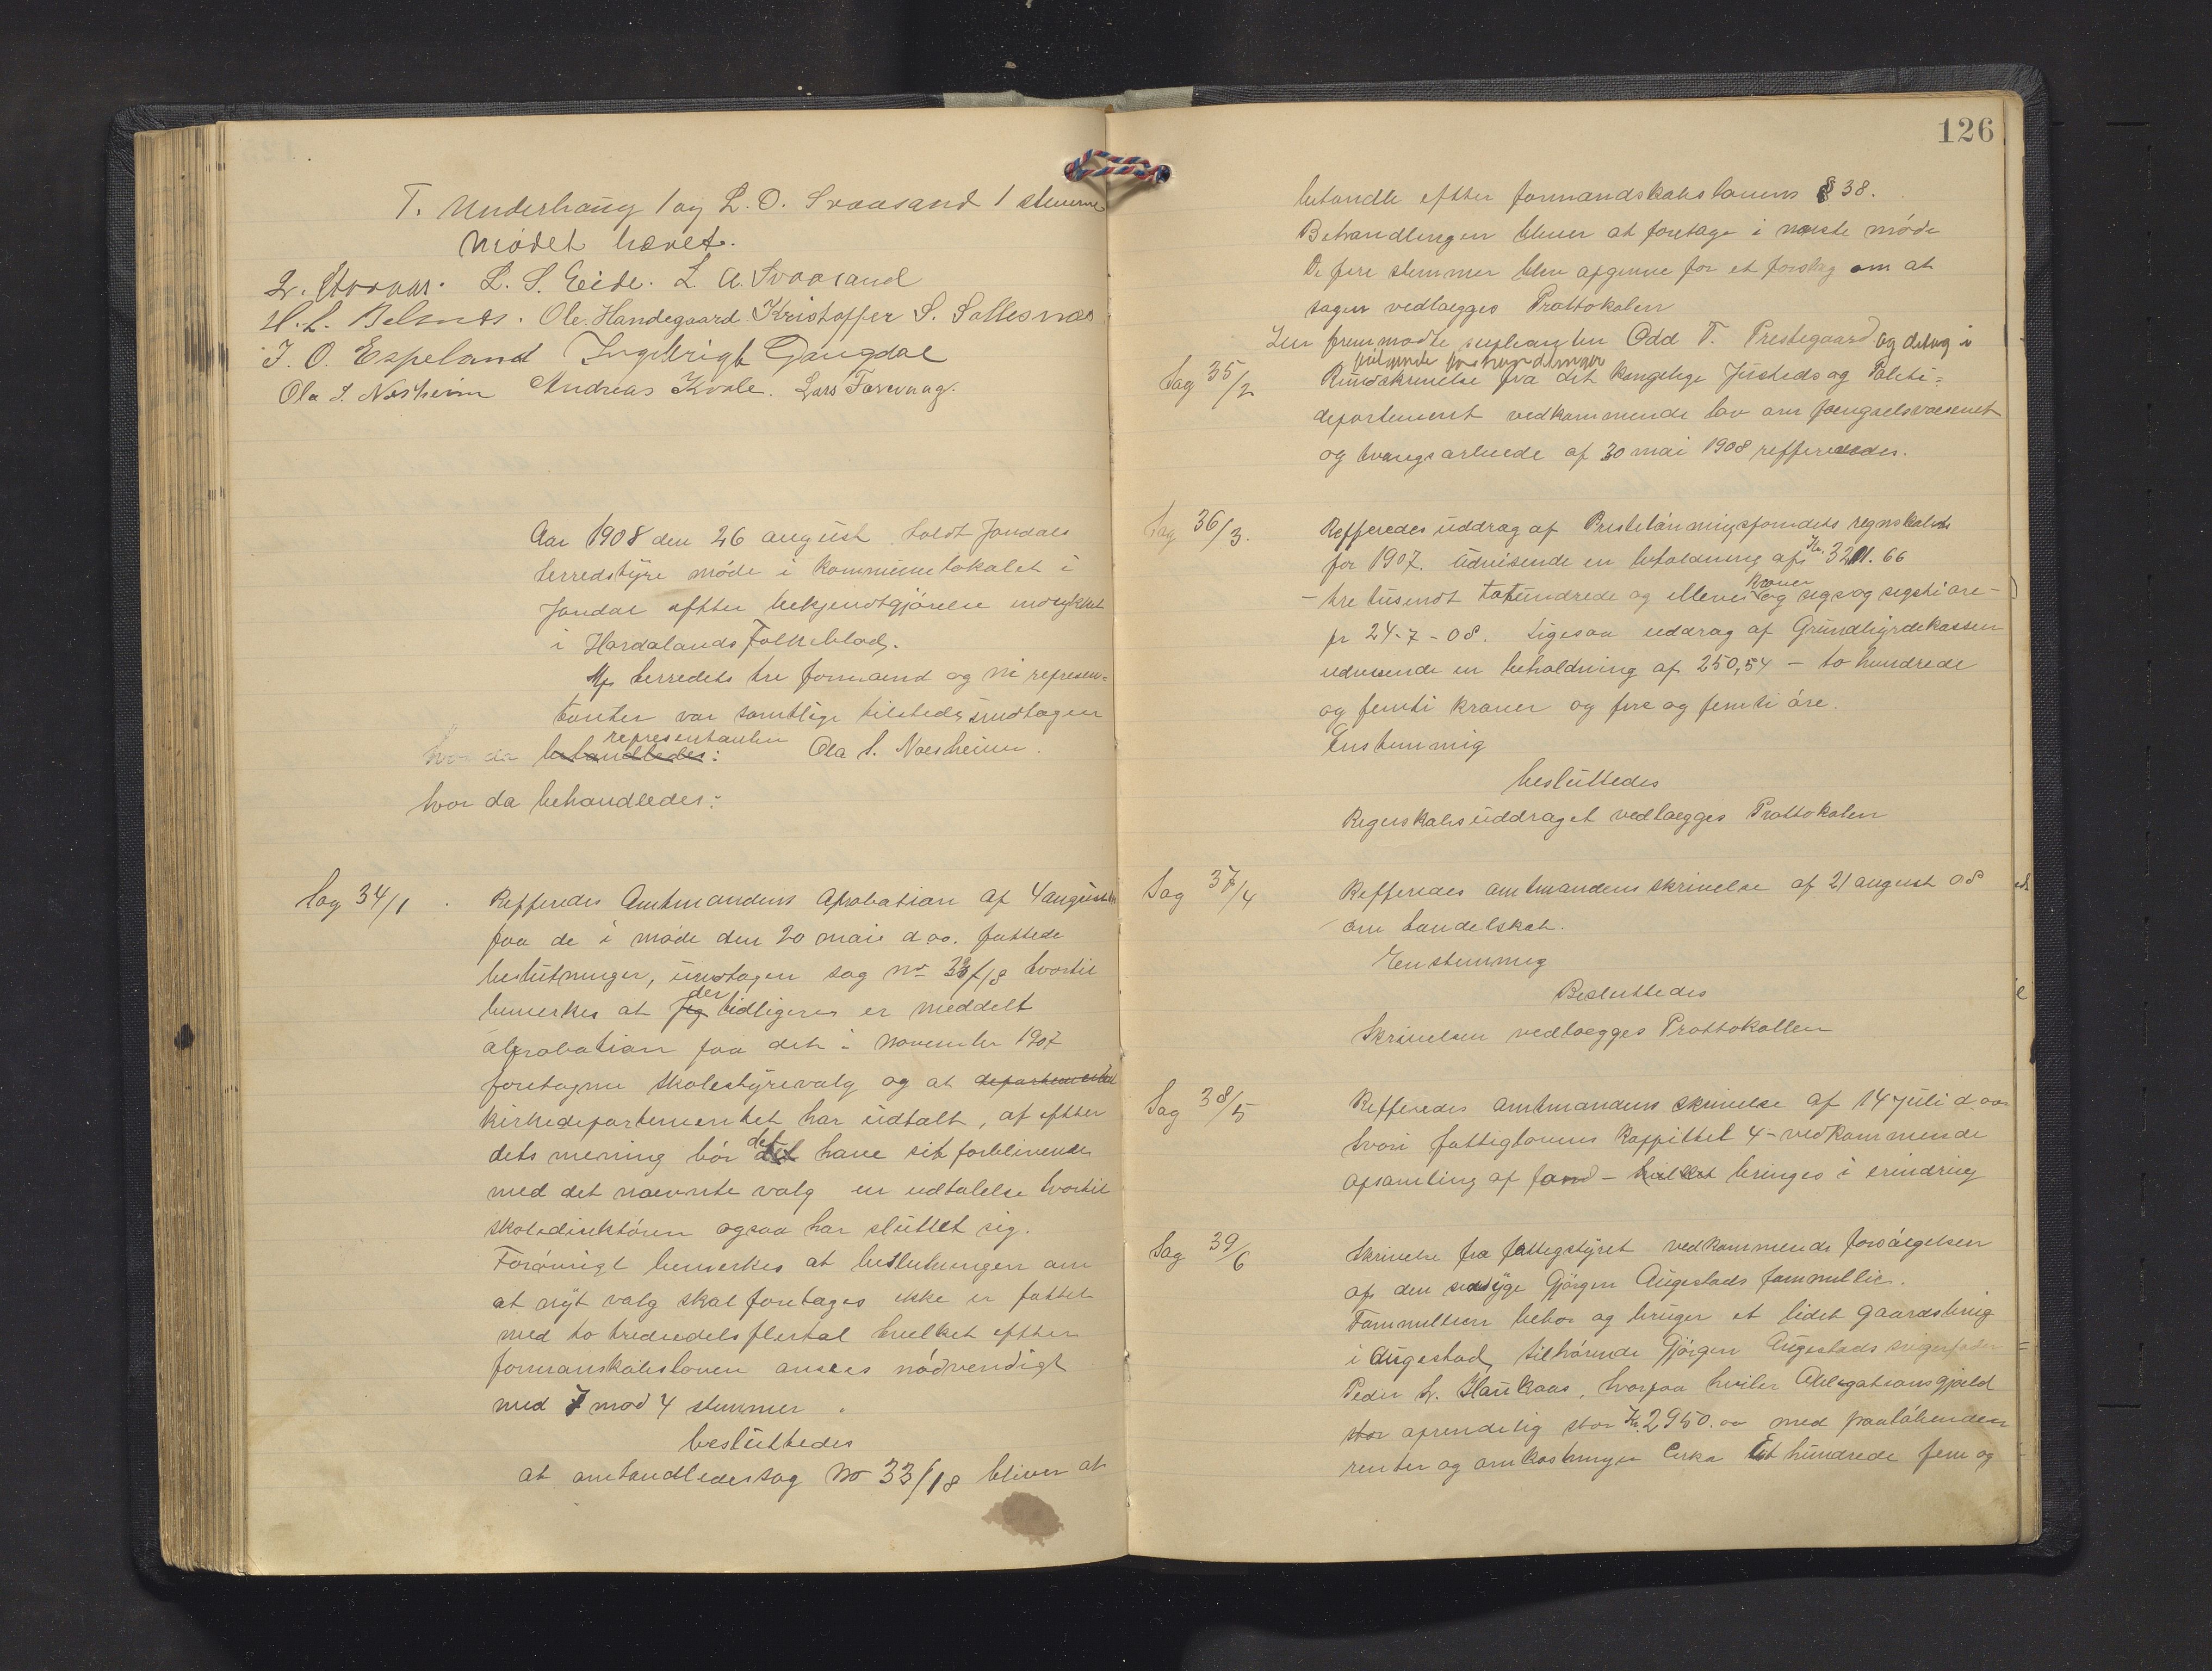 T. Underhaug 1 og L. O. Svaasand 1 stemme
Mødet hævet.
L. S. Eide. L. A. Svaasand
H. L. Belsnes. Ole Handegaard Kristoffer S. Sallesnæs
J. O. Espeland Ingebrigt Gangdal
Ola S. Næsheim Andreas Kvale. Lars Torsnaag.
Aar 1908 den 26 august holdt Jondals
herredstyre møde i kommunelokalet i
Jondal efter bekjendtgjørelse indrykket
i Hardalands Folkeblad.
Af herredets tre formænd og ni represen=
tanter var samtlige tilstede undtagen
representanten
hvor da behandledes: Ola S. Næsheim.
hvor da behandledes:
Sag 34/1 Refferedes Amtmandens Aprobation af 4 august
paa de i møde den 20 mai d aa. fattede
beslutninger, undtagen sag no 33/18 hvortil
der
bemerkes at jeg tidligere er meddelt
aprobation paa det i november 1907
foretagne skolestyrevalg og at departementet
kirkedepartementet har udtalt, at efter
det
dets mening bør det have sit forblivende
med det nævnte valg en udtalelse hvortil
skoledirektøren ogsaa har sluttet sig.
Forøvrigt bemerkes at beslutningen om
at nyt valg skal foretages ikke er fattet
med to trediedels flertal hvilket efter
formanskabsloven ansees nødvendigt
med 7 mod 4 stemmer.
besluttedes
at omhandledes sag no 33/18 bliver at
126
behandle efter formandskabslovens § 38.
Behandlingen bliver at foretage i næste møde
De fire stemmer blev afgivne for et forslag om at
sagen vedlægges Prottokolen
Den fremmødte suplianten Odd T. Prestegaard og deltog i
følgende forhandlinger
Sag 35/2 Rundskrivelse fra det kongelige Justeds og Politi=
departement vedkommende lov om fængselsvæsenet
og tvangsarbeide af 30 mai 1908 refferedes.
Sag 36/3. Refferedes uddrag af Prestelønningsfondets regnskab
for 1907. udvisende en beholdning af Kr. 3211.66
Kroner
– tre tusendt tohundrede og elleve og segs og segsti øre –
pr 24-7-08. Ligesaa uddrag af Grundbyrdekassen
udvisende en beholdning af 250,54 – to hundrede
og femti kroner og fire og femti øre.
Enstemmig
besluttedes
Regnskabsuddraget vedlægges Prottokolen
Sag 37/4 Refferedes amtmandens skrivelse af 21 august 08
om handelskat.
Enstemmig
Besluttedes
Skrivelsen vedlægges Prottokollen
Sag 38/5 Refferedes amtmandens skrivelse af 14 juli d. aa
hvori fattiglovens Kappittel 4 – vedkommende
opsamling af fond – hvilket bringes i erindring
Sag 39/6 Skrivelse fra fattigstyret vedkommende forsørgelsen
af den sindsyge Gjørgen Augestads fammillie.
Fammillien bebor og bruger et lidet gaardsbrug
i Augestad, tilhørende Gjørgen Augestads svigerfader
Peder L. Haukaas, hvorpaa hviler Obligationsgjæld
stor oprindelig stor Kr. 2950.00 med paaløbenden
renter og omkostninger Cirka Et hundrede fem og